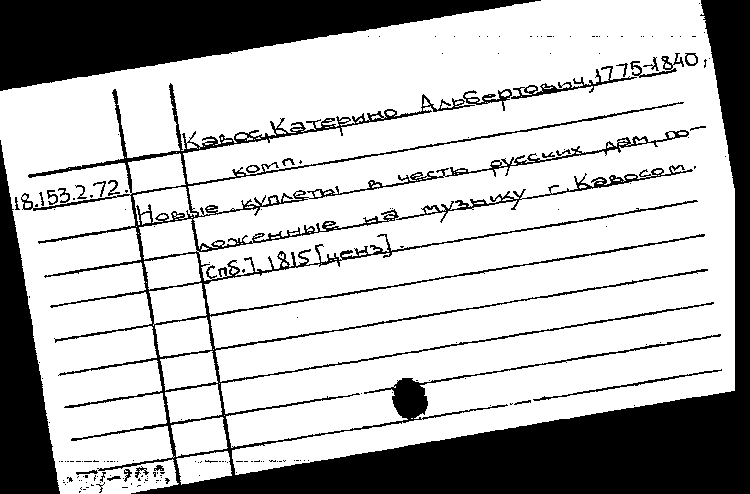 Кавос, Катерино Альбертович, 1775-1840,
комп.
18.153.2.72.
Новые куплеты в честь русских дам, по-
ложенные на музыку г. Кавосом.
[Спб.], 1815 [ценз].